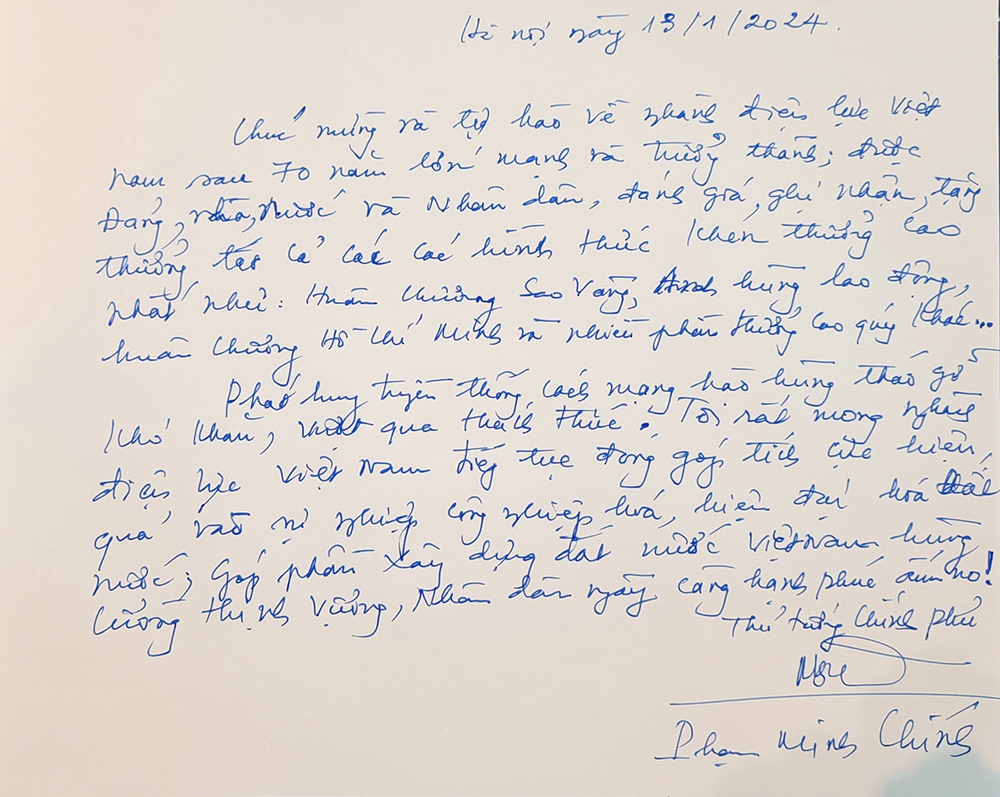 Hà nội ngày 13/1/2024.
Chúc mừng và tự hào về nghành điện lực Việt
Nam sau 70 năm lớn mạnh và trưởng thành; được
Đảng, nhà nước và Nhân dân, đánh giá, ghi nhận, tặng
thưởng tất cả các các hình thức khen thưởng cao
nhất như: Huân chương Sao Vàng, Anh hùng lao động,
huân chương Hồ Chí Minh và nhiều phần thưởng cao quý khác...
Phát huy truyền thống cách mạng hào hùng tháo gỡ
khó khăn, vượt qua thách thức. Tôi rất mong nghành
điện lực Việt Nam tiếp tục đóng góp tích cực hiệu
quả vào sự nghiệp công nghiệp hoá, hiện đại hoá đất
nước; góp phần xây dựng đất nước Việt Nam hùng
cường thịnh vượng, Nhân dân ngày càng hạnh phúc ấm no!
Thủ tướng Chính phủ
Phạm Minh Chính